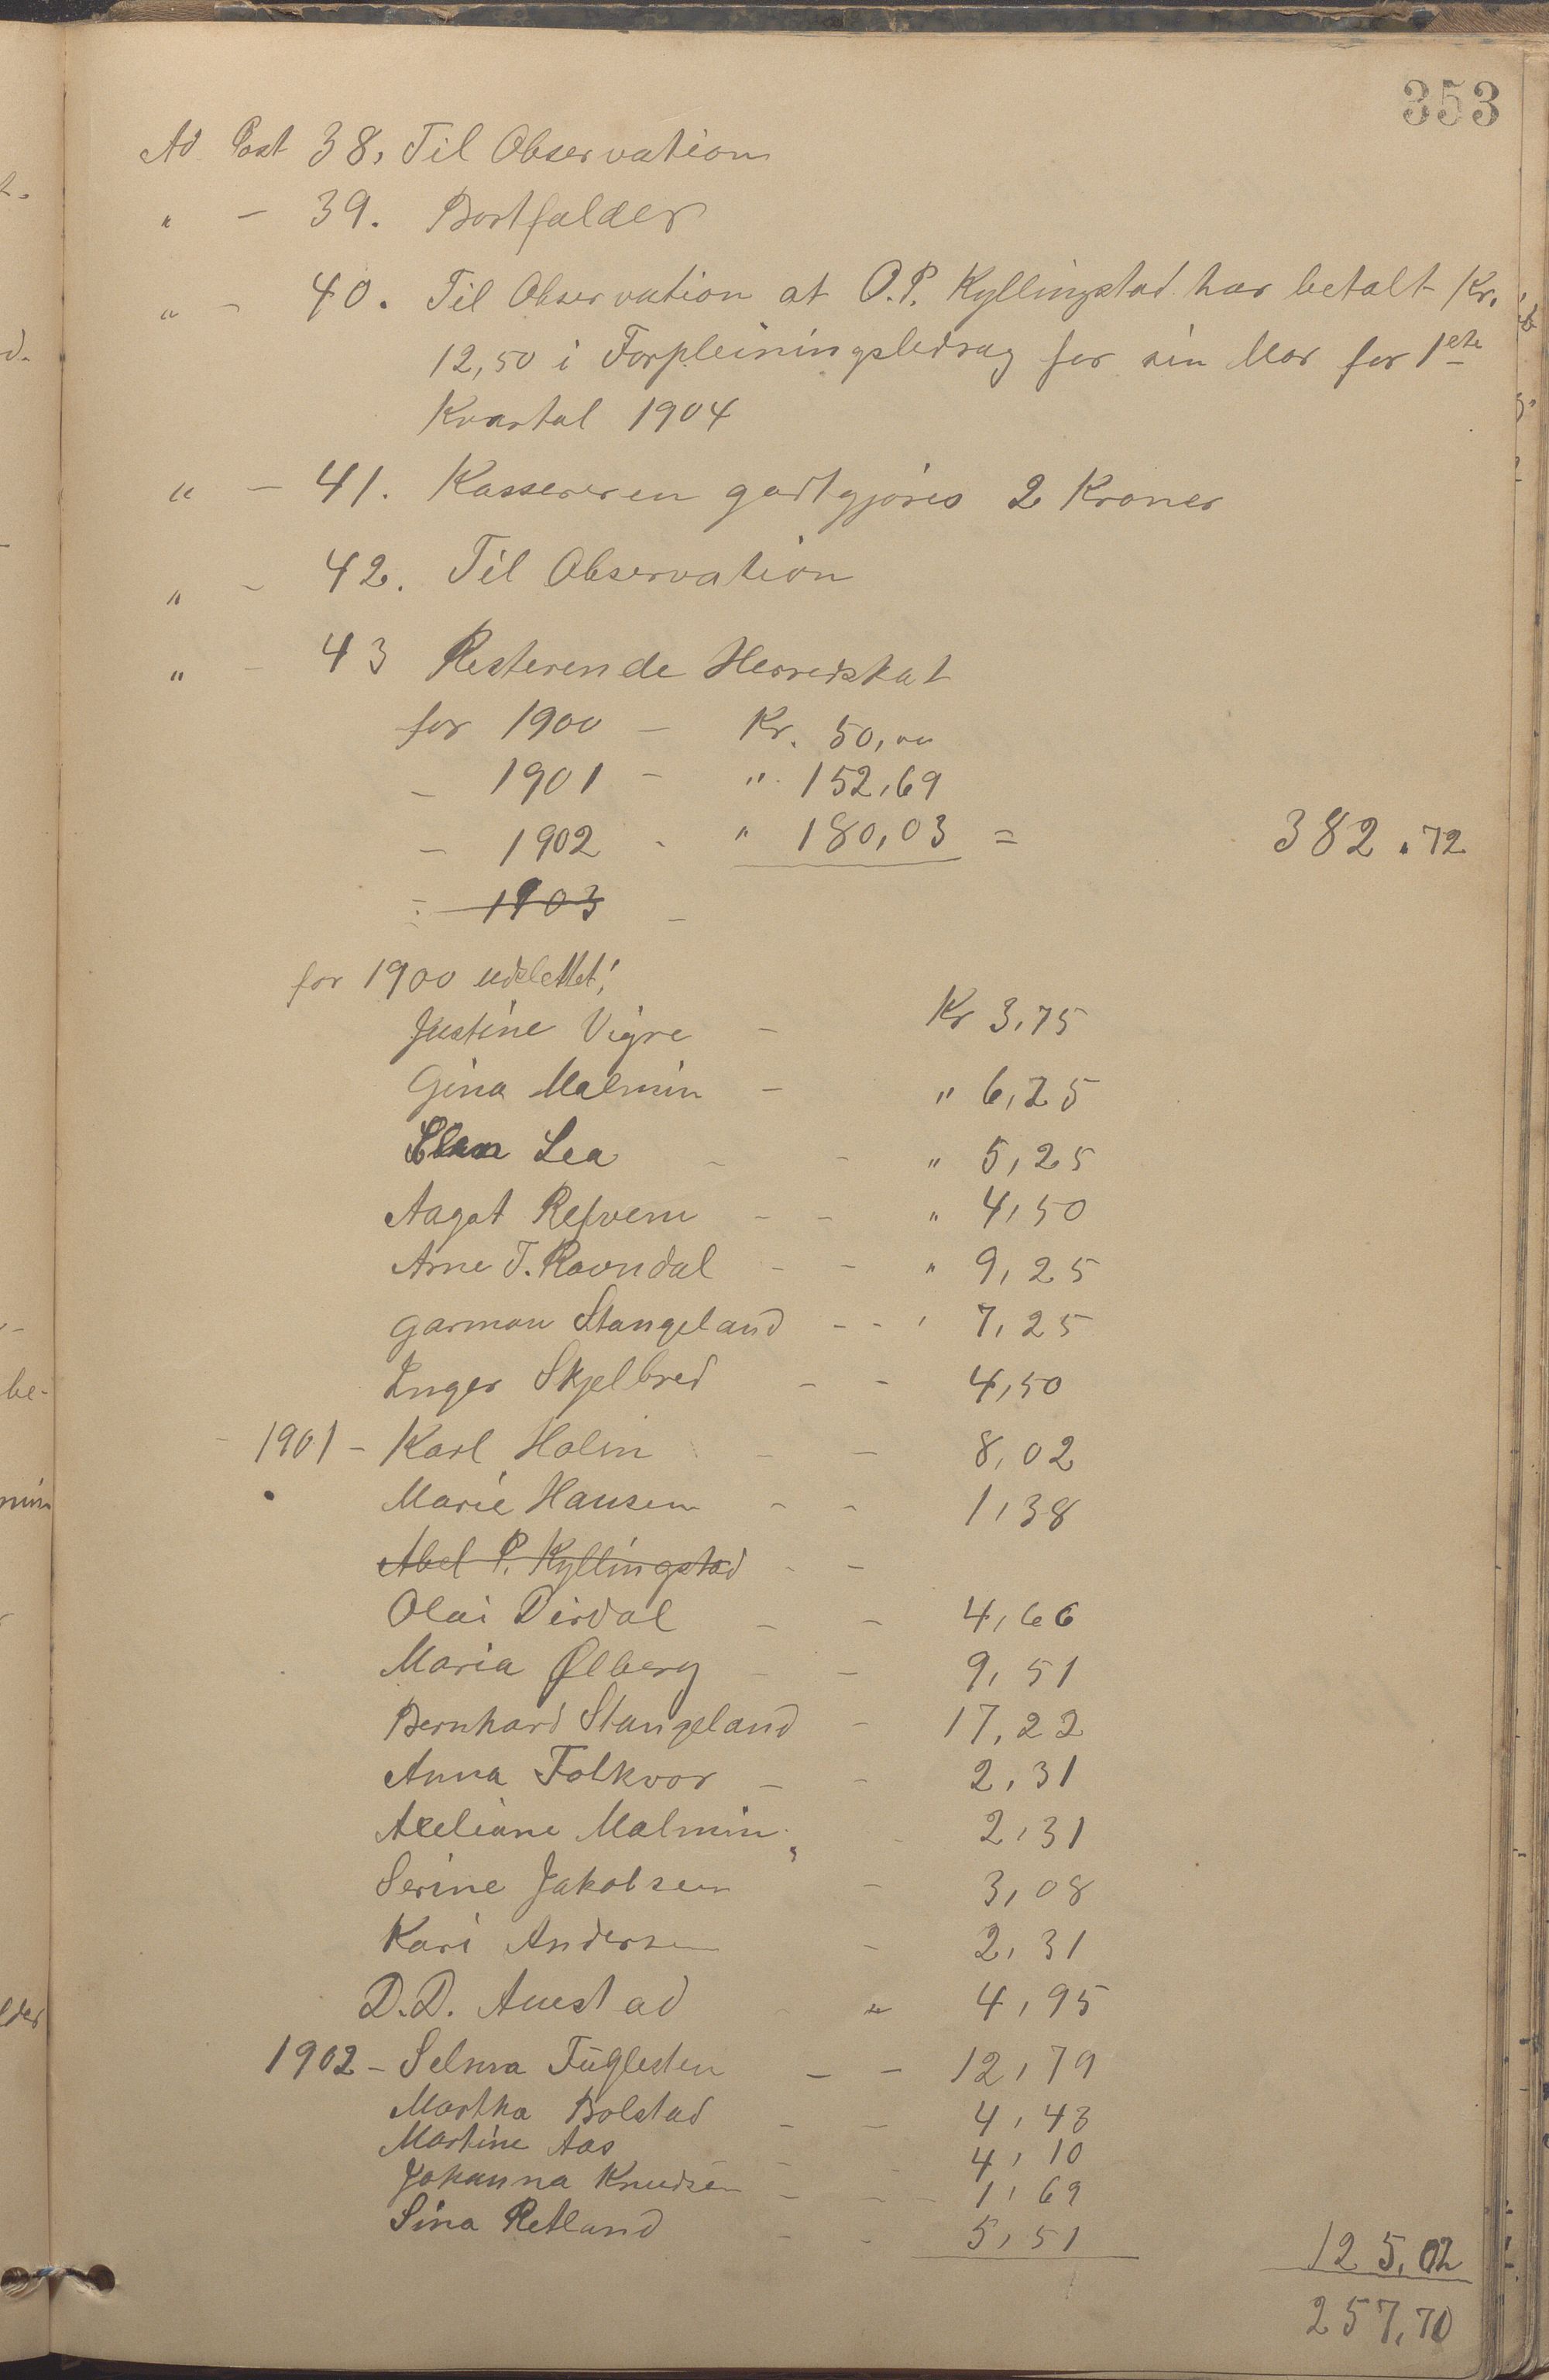 353
Ad Post 38, Til Observation
" - 39. Bortfalder
" - 40. Til Observation at O.P. Kyllingstad har betalt Kr.
12,50 i Forpleiningsbidrag for sin Mor for 1ste
Kvartal 1904
" - 41. Kassereren godtgjøres 2 Kroner
" - 42. Til Observation
" - 43 Resterende Herredskat
for 1900 - Kr. 50,00
- 1901 - " 152,69
- 1902 - " 180,03 = 382.72
- 1903 -
for 1900 udslettet:
Justine Vigre - Kr 3,75
Gina Malmin - " 6,25
Lea - - " 5,25
Aagot Refvem - - " 4,50
Arne T. Ravndal - - " 9,25
Garman Stangeland - - " 7,25
Inger Skjelbred - - 4,50
- 1901 - Karl Holm - - 8,02
Marie Hansen - - 1,38
Abel P. Kyllingstad - -
Olai Dirdal - - 4,66
Maria Ølberg - - 9,51
Bernhard Stangeland - 17,22
Anna Folkvor - - 2,31
Axeliane Malmin - 2,31
Serine Jakobsen - 3,08
Kari Andersen - 2,31
D.D. Auestad - " 4,95
1902 - Selma Fuglesten - - 12,79
Martha Bolstad - - 4,43
Martine Aas - - 4,10
Johanna Knudsen - - 1,69
Sina Retland - - 5,51 125,02
257,70